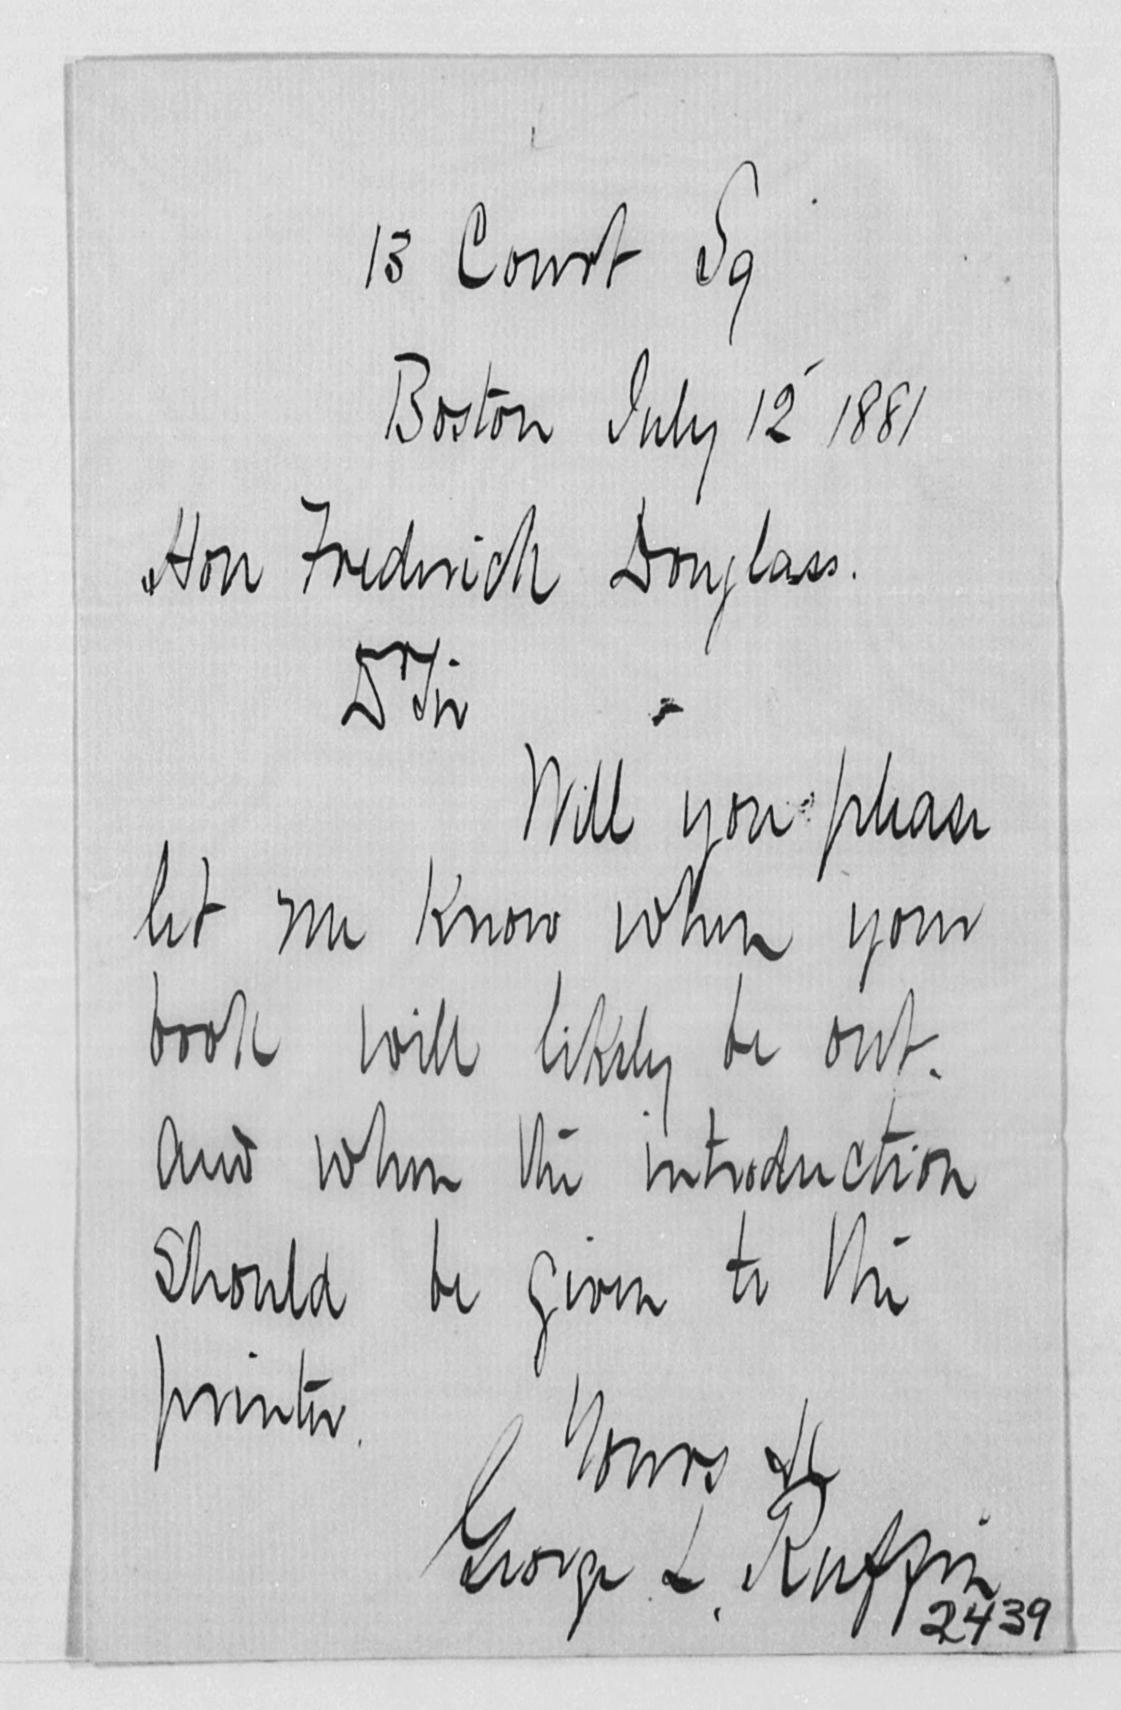 13 Court Sq
Boston July 12 1881
Hon Frederick Douglass.
Dr Sir
Will you please
let me know when your
book will likely be out.
And when the introduction
should be given to the
printer.
Yours &c
George L. Ruffin
2439